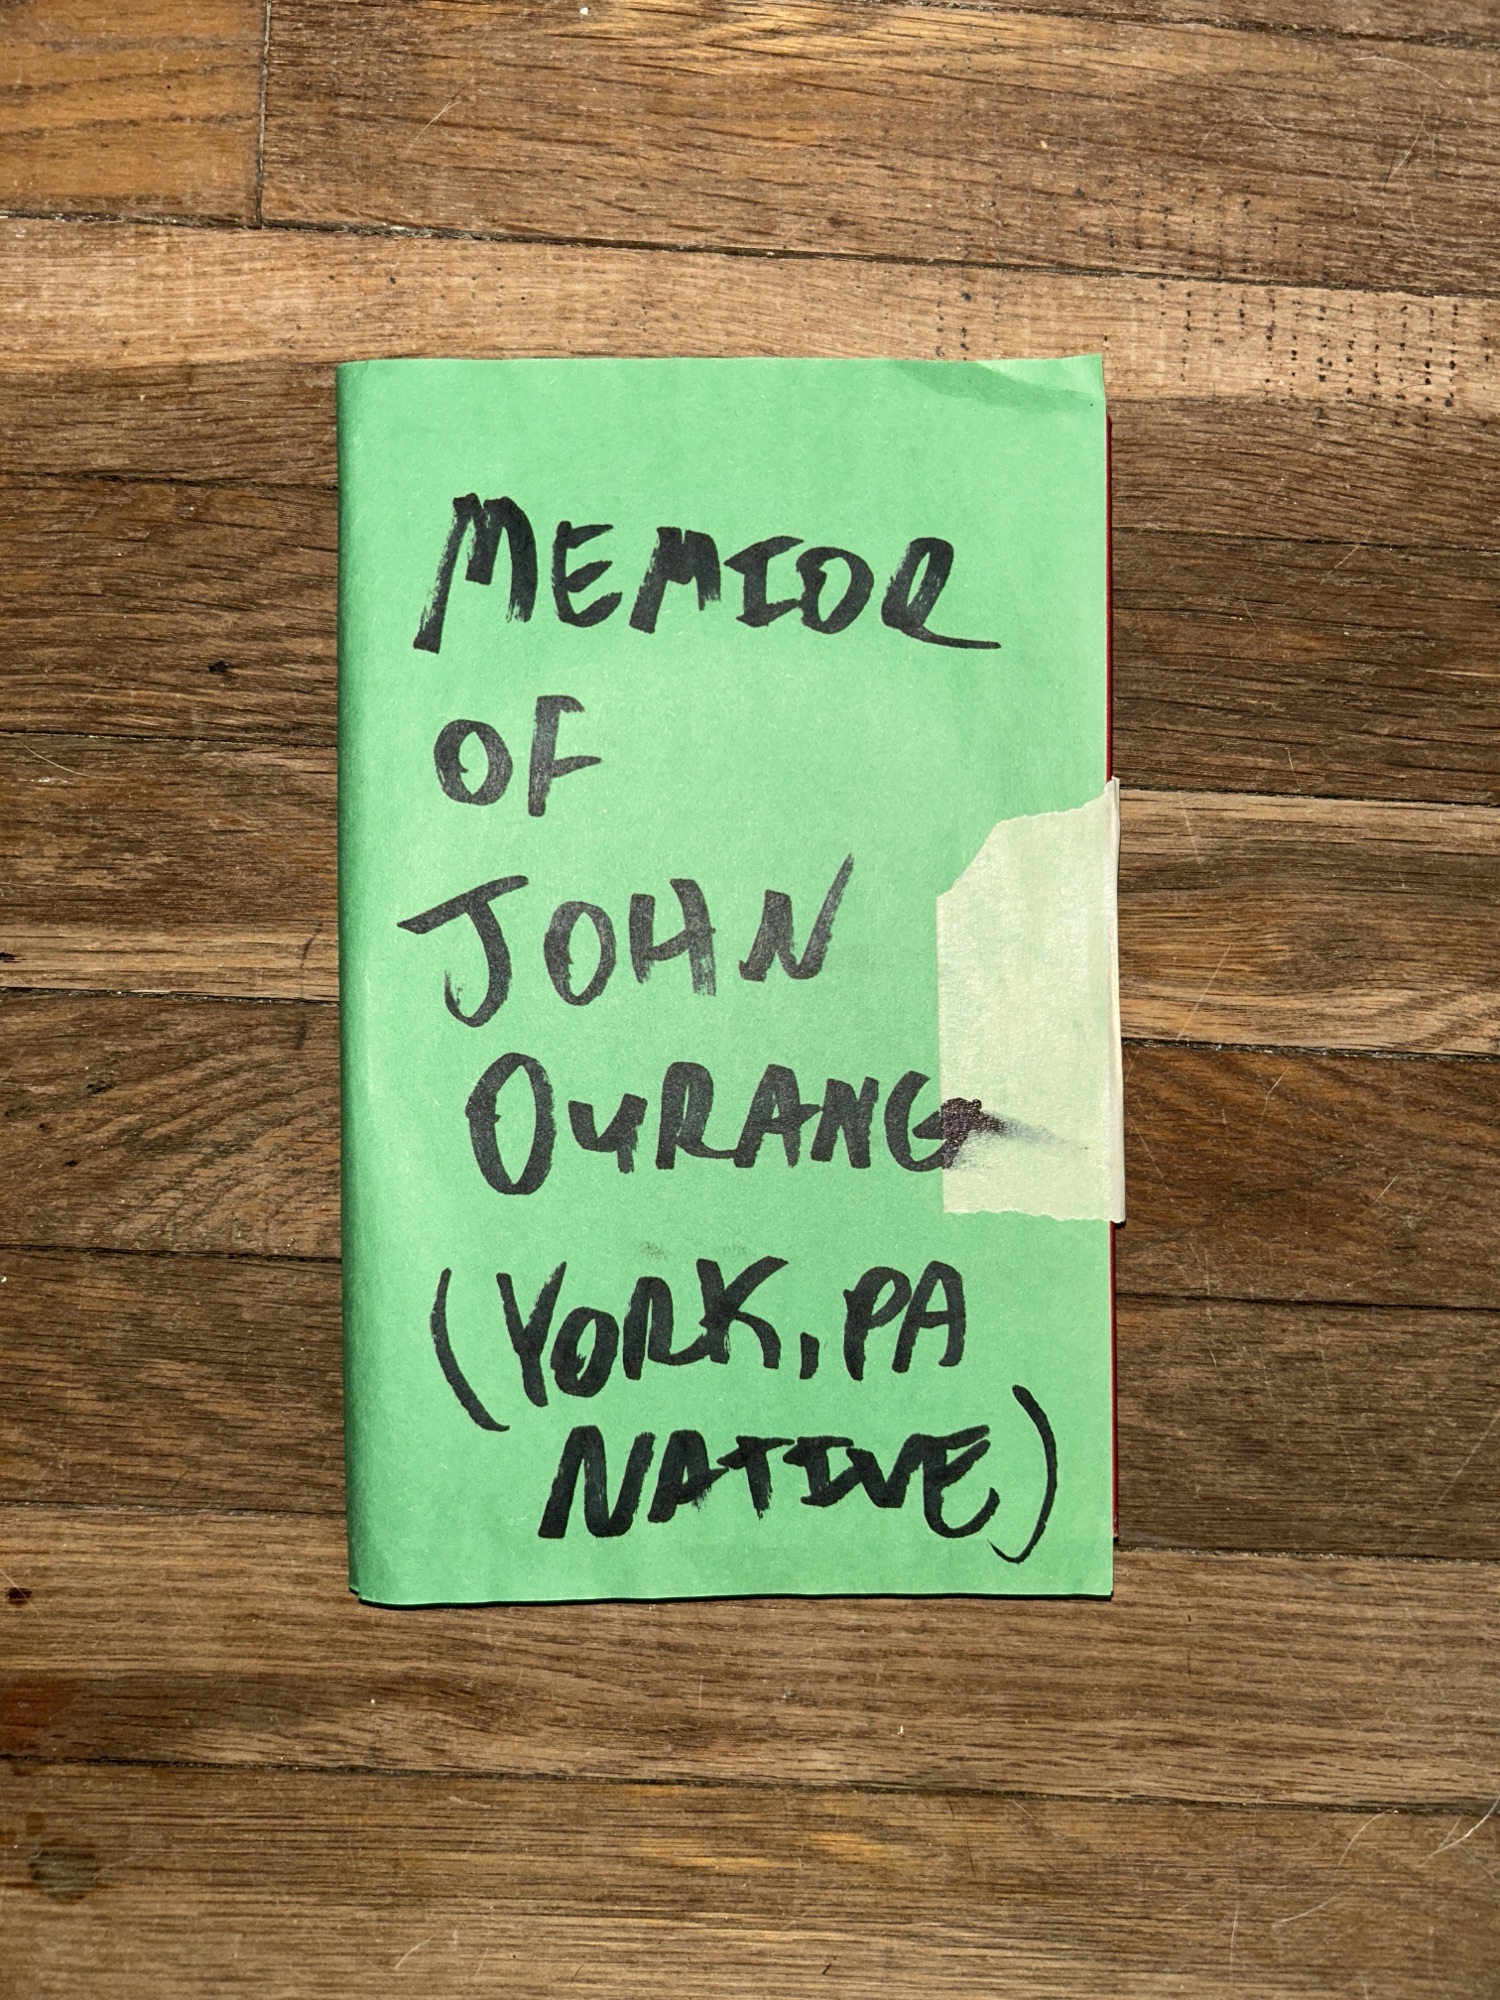 MEMIOR
OF
JOHN
OURANG
(YORK, PA
NATIVE)